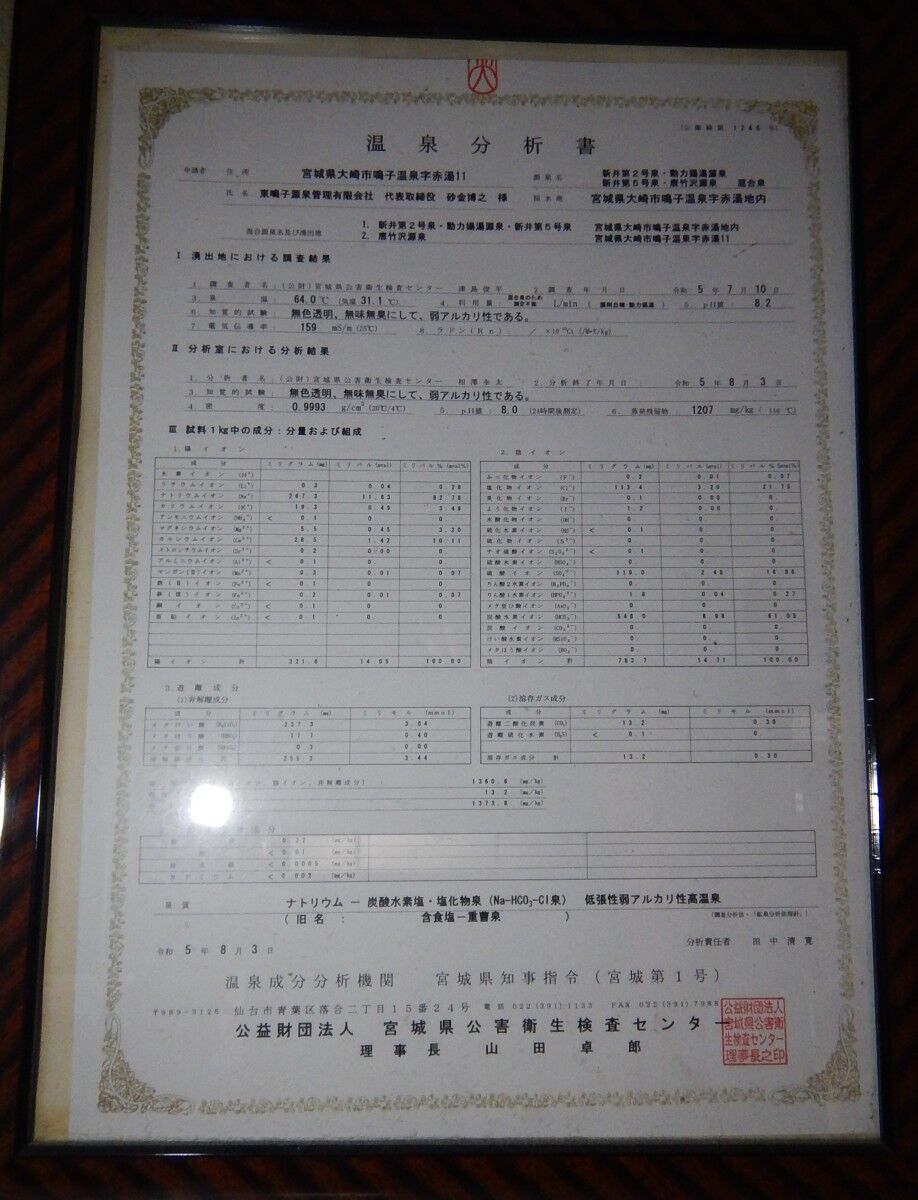 温泉分析書
申請者 住所 宮城県大崎市鳴子温泉字赤湯11
源泉名 新井第2号泉・動力揚湯源泉
新井第5号泉・唐竹沢源泉 混合泉
氏名 東鳴子源泉管理有限会社 代表取締役 砂金博之 様
採水地 宮城県大崎市鳴子温泉字赤湯地内
混合源泉名及び湧出地
1. 新井第2号泉・動力揚湯源泉・新井第5号泉 宮城県大崎市鳴子温泉字赤湯地内
2. 唐竹沢源泉 宮城県大崎市鳴子温泉字赤湯11
Ⅰ 湧出地における調査結果
1. 調査者名:(公財)宮城県公害衛生検査センター 津島俊平 2. 調査年月日 令和 5年 7月 10日
3. 泉温: 64.0℃ (気温 31.1 ℃) 4. 利用量: 混合泉のため測定不能 L/min (掘削自噴・動力揚湯) 5. pH値: 8.2
6. 知覚的試験: 無色透明、無味無臭にして、弱アルカリ性である。
7. 電気伝導率: 159 mS/m (25℃) 8. ラドン(Rn) /
Ⅱ 分析室における分析結果
1. 分析者名:(公財)宮城県公害衛生検査センター 相澤幸太 2. 分析終了年月日: 令和 5年 8月 3日
3. 知覚的試験: 無色透明、無味無臭にして、弱アルカリ性である。
4. 密度: 0.9993 g/cm³ (20℃/4℃) 5. pH値: 8.0 (24時間後測定) 6. 蒸発残留物: 1207 mg/kg (110 ℃)
Ⅲ 試料1kg中の成分:分量および組成
1. 陽イオン
成分 ミリグラム(mg) ミリバル(mval) ミリバル%(mval%)
水素イオン (H⁺)
リチウムイオン (Li⁺) 0.3 0.04 0.28
ナトリウムイオン (Na⁺) 267.3 11.63 82.78
カリウムイオン (K⁺) 19.3 0.49 3.49
アンモニウムイオン (NH₄⁺) < 0.1 0. 0.
マグネシウムイオン (Mg²⁺) 5.5 0.45 3.20
カルシウムイオン (Ca²⁺) 28.5 1.42 10.11
ストロンチウムイオン (Sr²⁺) 0.2 0.00 0.
アルミニウムイオン (Al³⁺) < 0.1 0. 0.
マンガン(Ⅱ)イオン (Mn²⁺) 0.3 0.01 0.07
鉄(Ⅱ)イオン (Fe²⁺) < 0.1 0. 0.
鉄(Ⅲ)イオン (Fe³⁺) 0.2 0.01 0.07
銅イオン (Cu²⁺) < 0.1 0. 0.
亜鉛イオン (Zn²⁺) < 0.1 0. 0.
陽イオン計 321.6 14.05 100.00
2. 陰イオン
成分 ミリグラム(mg) ミリバル(mval) ミリバル%(mval%)
ふっ化物イオン (F⁻) 0.2 0.01 0.07
塩化物イオン (Cl⁻) 113.4 3.20 21.75
臭化物イオン (Br⁻) 0.1 0.00 0.
よう化物イオン (I⁻) 1.2 0.00 0.
水酸化物イオン (OH⁻) 0. 0. 0.
硫化水素イオン (HS⁻) < 0.1 0. 0.
硫化物イオン (S²⁻) 0. 0. 0.
チオ硫酸イオン (S₂O₃²⁻) < 0.1 0. 0.
硫酸水素イオン (HSO₄⁻) 0. 0. 0.
硫酸イオン (SO₄²⁻) 119.0 2.48 16.86
りん酸2水素イオン (H₂PO₄⁻) 0. 0. 0.
りん酸1水素イオン (HPO₄²⁻) 1.8 0.04 0.27
メタ亜ひ酸イオン (AsO₂⁻) 0. 0. 0.
炭酸水素イオン (HCO₃⁻) 548.0 8.98 61.05
炭酸イオン (CO₃²⁻) 0. 0. 0.
けい酸水素イオン (HSiO₃⁻) 0. 0. 0.
メタほう酸イオン (BO₂⁻) 0. 0. 0.
陰イオン計 783.7 14.71 100.00
3. 遊離成分
(1)非解離成分
成分 ミリグラム (mg) ミリモル (mmol)
メタけい酸 (H₂SiO₃) 237.3 3.04
メタほう酸 (HBO₂) 17.7 0.40
メタ亜ひ酸 (HAsO₂) 0.3 0.00
非解離成分計 255.3 3.44
(2)溶存ガス成分
成分 ミリグラム (mg) ミリモル (mmol)
遊離二酸化炭素 (CO₂) 13.2 0.30
遊離硫化水素 (H₂S) < 0.1 0.
溶存ガス成分計 13.2 0.30
陰イオン、非解離成分]: 1360.6 (mg/kg)
13.2 (mg/kg)
1373.8 (mg/kg)
成分
0.22 (mg/kg)
< 0.01 (mg/kg)
総水銀 < 0.0005 (mg/kg)
カドミウム < 0.002 (mg/kg)
泉質 ナトリウム ー 炭酸水素塩・塩化物泉 (Na-HCO₃-Cl泉) 低張性弱アルカリ性高温泉
(旧名: 含食塩ー重曹泉)
(調査分析法・「鉱泉分析法指針」)
令和 5年 8月 3日
分析責任者 田中清寛
温泉成分分析機関 宮城県知事指令(宮城第1号)
〒989-3126 仙台市青葉区落合二丁目15番24号 電話 022(391)1133 FAX 022(391)7988
公益財団法人 宮城県公害衛生検査センター
理事長 山田卓郎
公益財団法人
宮城県公害衛
生検査センター
理事長之印